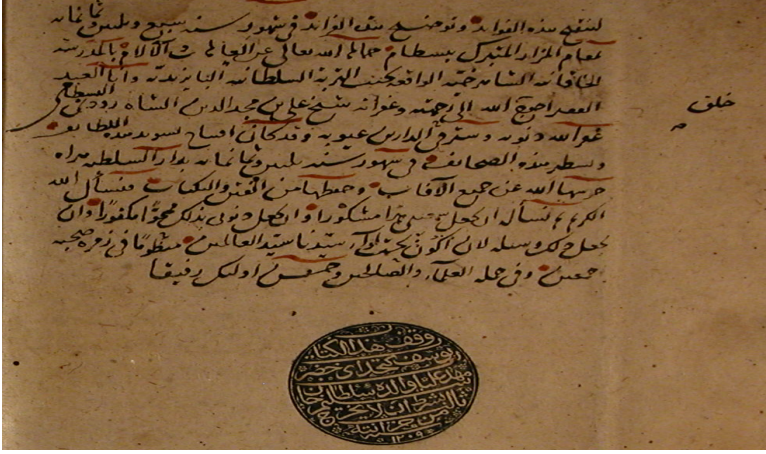 لتنقيح هذه الفوائد وتوضيح هذه الفرائد في شهور سنة سبع وثلثين وثمانمائة
بمقام المزار المتبرك ببسطام حماها الله تعالى عن الآلام بالمدرسة
الواقعة بجنب التربة السلطانية البايزيدية وأنا العبد
الفقير احوج الله الى رحمته وغفرانه شيخ علي بن مجد الدين الشاهرودي البسطامي
غفر الله ذنوبه وستر في الدارين عيوبه وقد كان افتتاح تسويد هذه اللطايف
وتسطير هذه الصحائف في شهور سنة ثلثين وثمانمائة بدار السلطنة هراة
حرسها الله عن جميع الآفات وحفظها من الفتن والنكبات ونسأل الله
الكريم ان يجعل سعيي هذا مشكورا وان يجعل ذنوبي بذلك مكفورا وان
يجعل ذلك وسيلة لان اكون تحت لواء سيدنا سيد العالمين منظوما في زمرة صحبه
اجمعين وفي جملة العلماء والصالحين وحسن اولئك رفيقا
خلق
وقف هذا الكتاب
يوسف كتخداي
والده سلطان سليم خان
بشرط ان لا يخرج
من خزانته
١٢٠٩